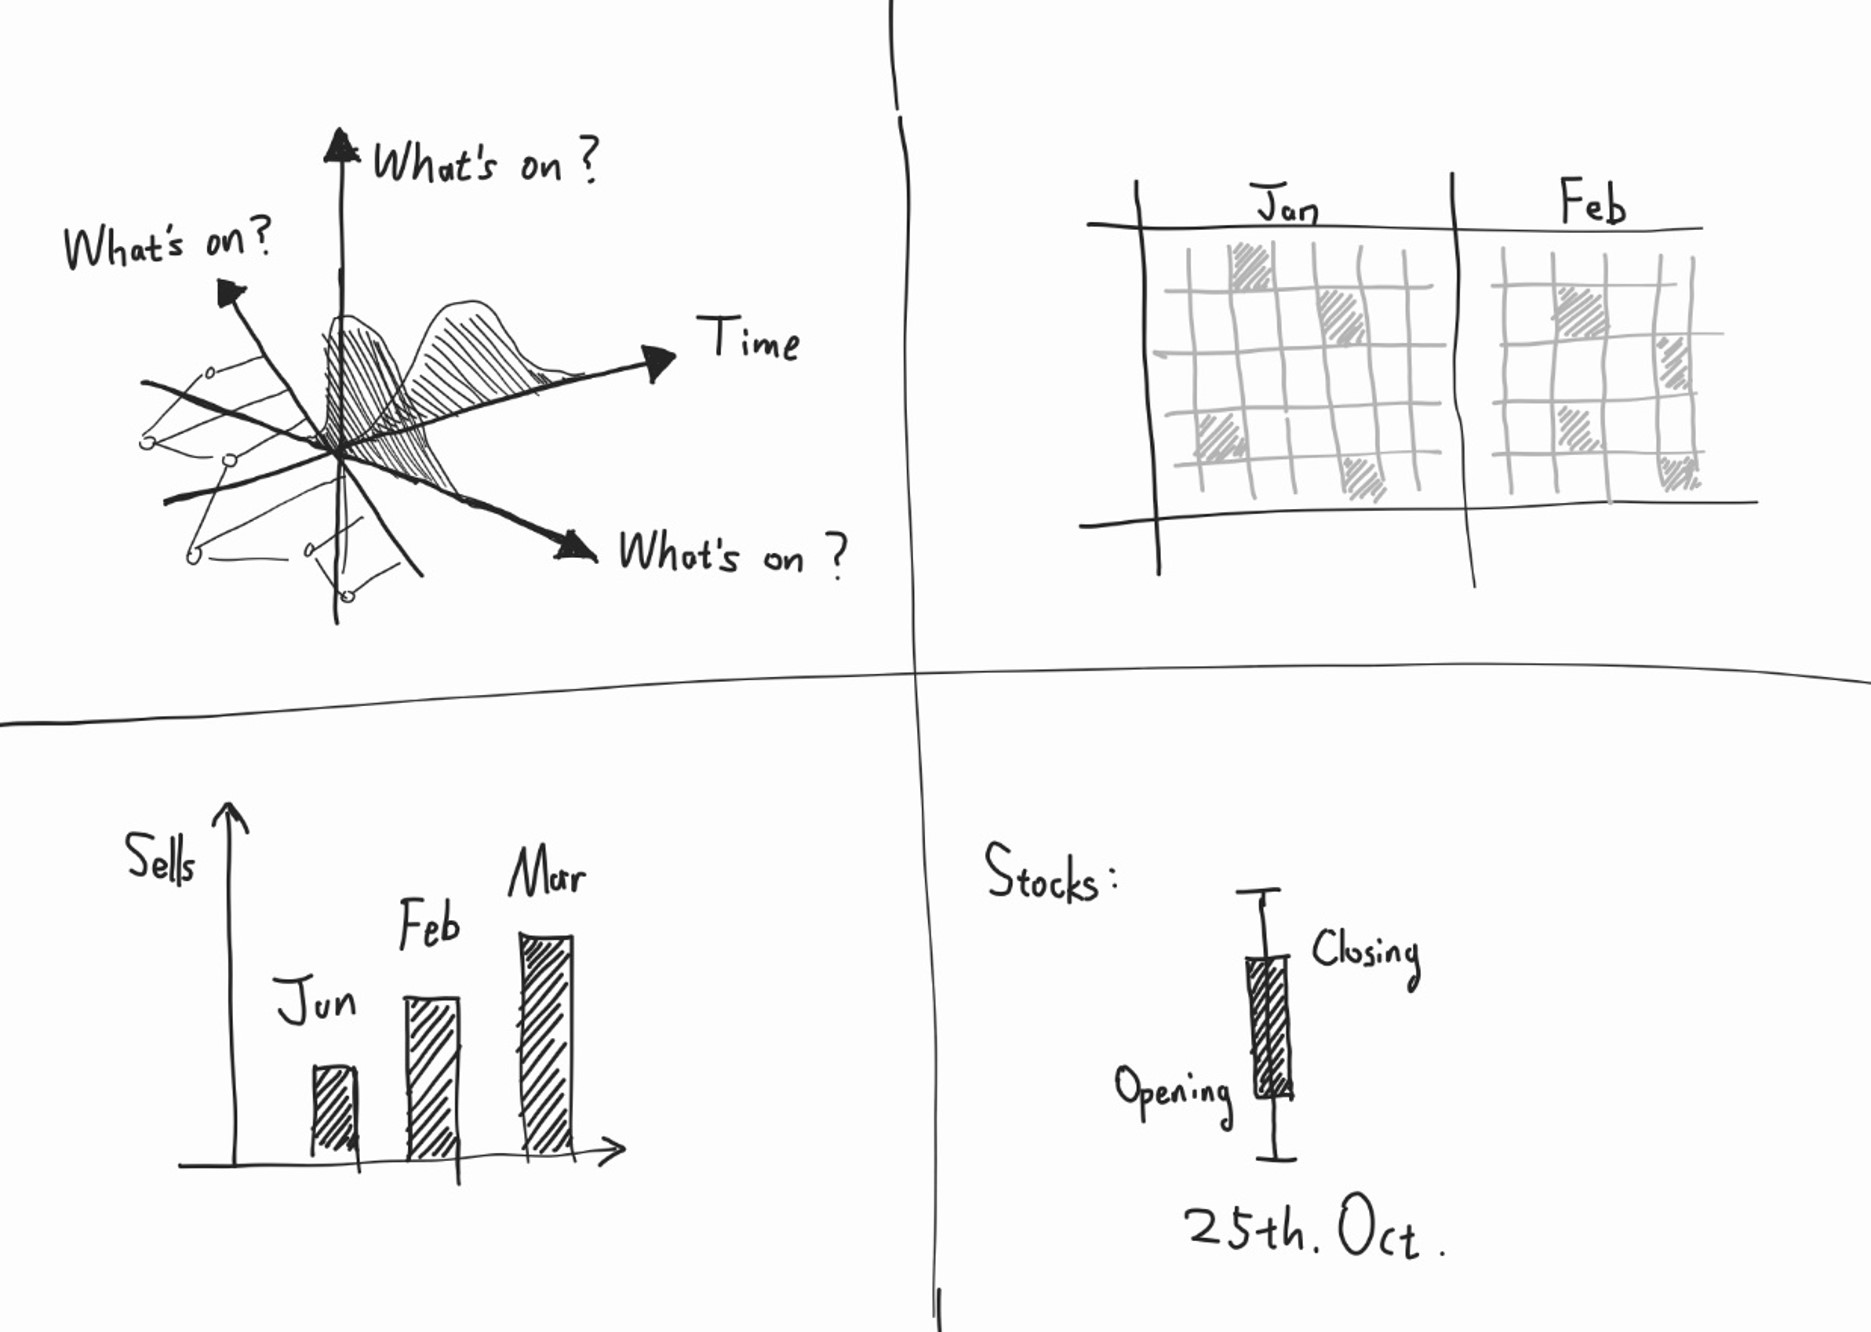 What's on ?
What's on?
Time
What's on ?
Jan
Feb
Sells
Jun
Feb
Mar
Stocks:
Closing
Opening
25th. Oct.